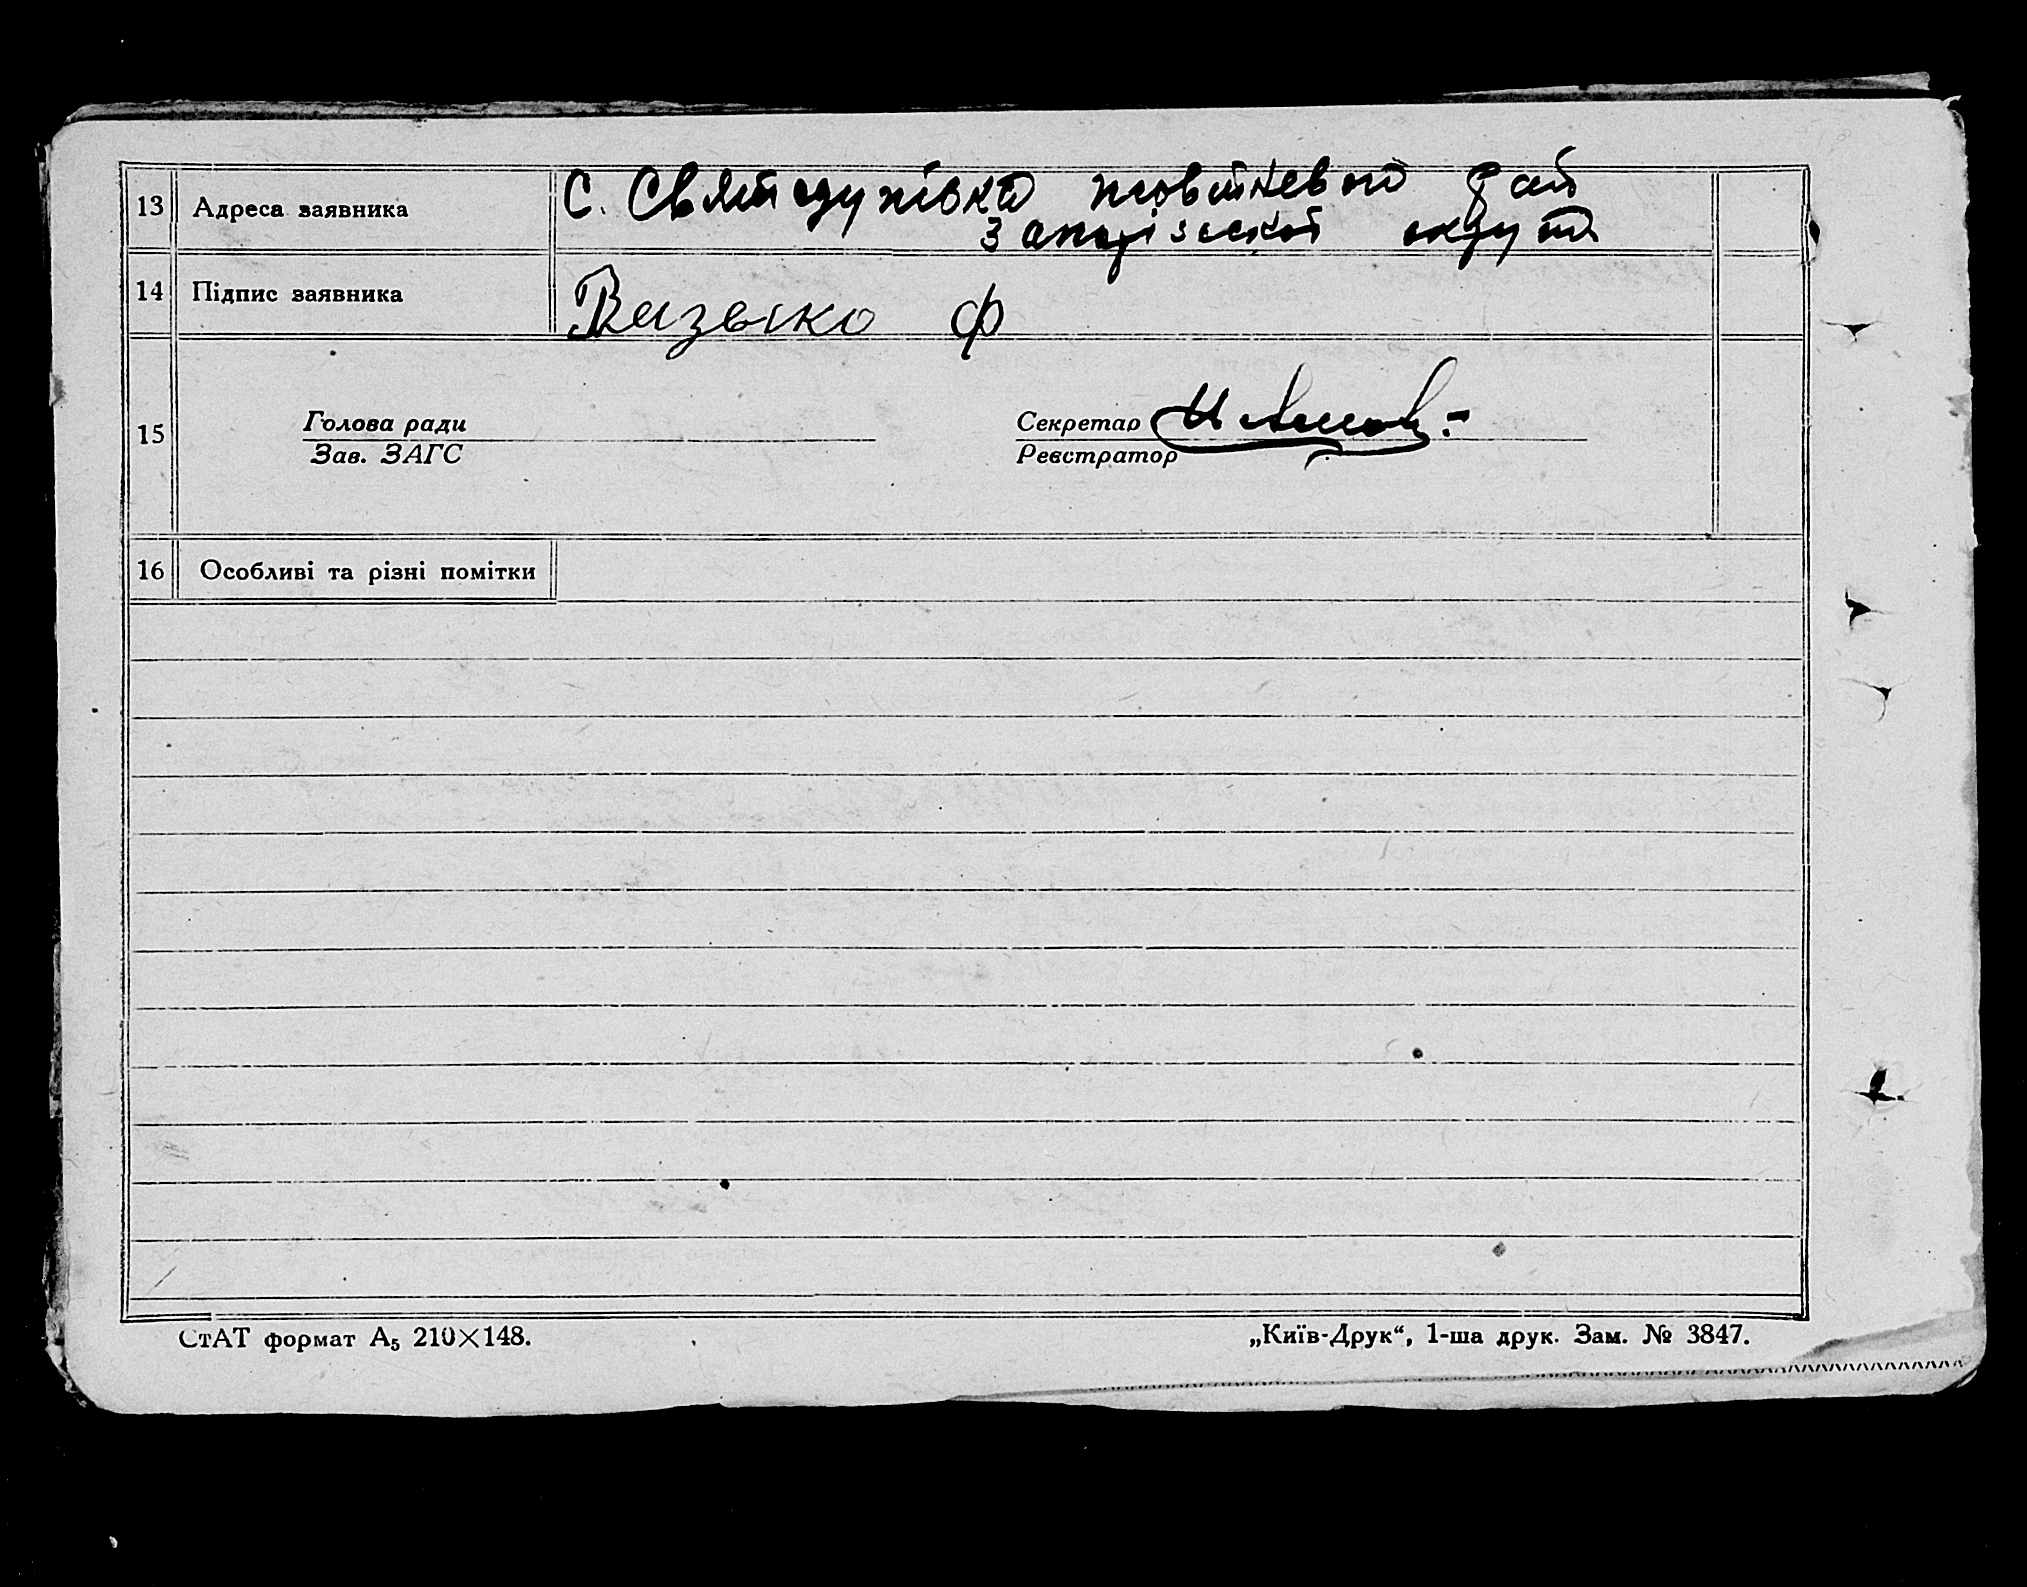 13 Адреса заявника с. Святодухівка жовтневого рай
Запорізької округи
14 Підпис заявника Визько Ф
15 Голова ради Секретар
Зав. ЗАГС Реєстратор
16 Особливі та різні помітки
СтАТ формат А₅ 210×148. „Київ-Друк“, 1-ша друк. Зам. № 3847.